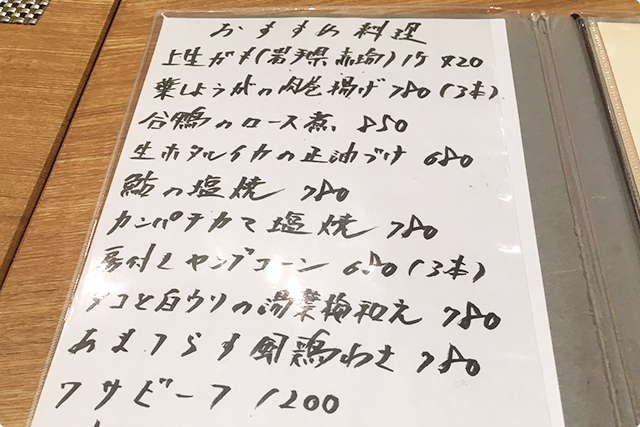 おすすめ料理
上生ガキ(岩手県赤崎)1ケ 420
葉しょうがの肉巻揚げ 780(3本)
合鴨のロース煮 850
生ホタルイカの正油づけ 680
鮎の塩焼 780
カンパチカマ塩焼 780
房付ヤングコーン 680(3本)
タコと白ウリの湯葉梅和え 780
あまつらす風鶏わさ 780
ワサビーフ 1200